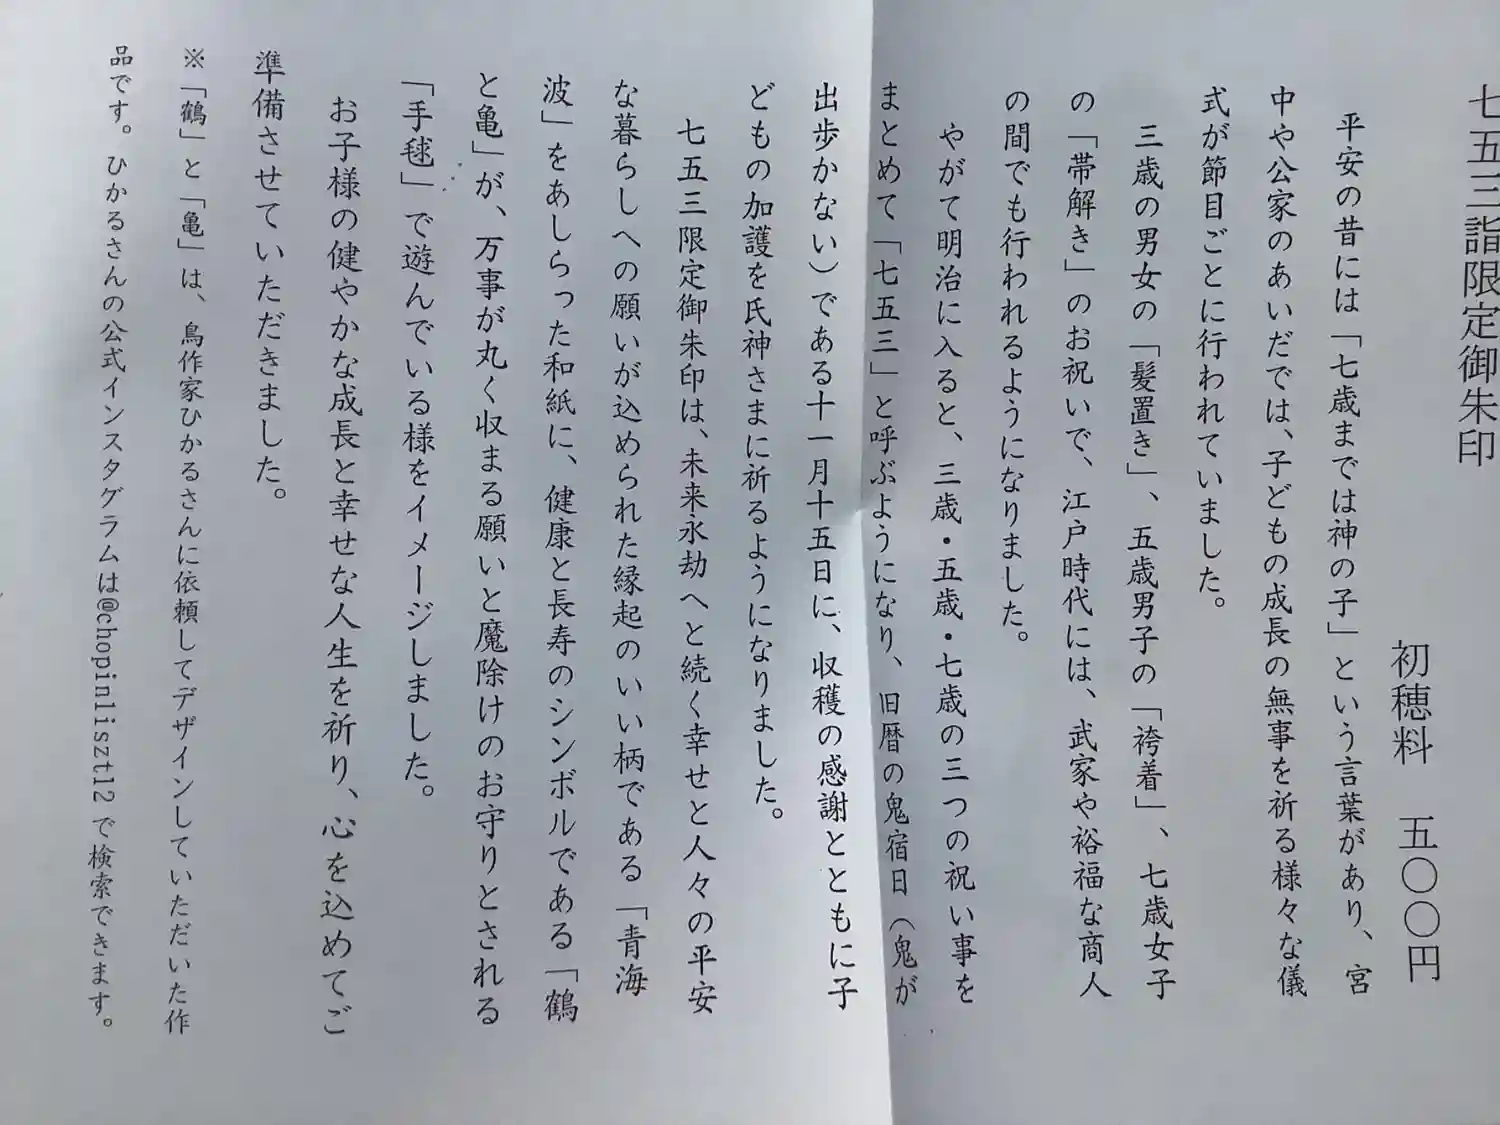 七五三詣限定御朱印
初穂料　五〇〇円
平安の昔には「七歳までは神の子」という言葉があり、宮
中や公家のあいだでは、子どもの成長の無事を祈る様々な儀
式が節目ごとに行われていました。
三歳の男女の「髪置き」、五歳男子の「袴着」、七歳女子
の「帯解き」のお祝いで、江戸時代には、武家や裕福な商人
の間でも行われるようになりました。
やがて明治に入ると、三歳・五歳・七歳の三つの祝い事を
まとめて「七五三」と呼ぶようになり、旧暦の鬼宿日（鬼が
出歩かない）である十一月十五日に、収穫の感謝とともに子
どもの加護を氏神さまに祈るようになりました。
七五三限定御朱印は、未来永劫へと続く幸せと人々の平安
な暮らしへの願いが込められた縁起のいい柄である「青海
波」をあしらった和紙に、健康と長寿のシンボルである「鶴
と亀」が、万事が丸く収まる願いと魔除けのお守りとされる
「手毬」で遊んでいる様をイメージしました。
お子様の健やかな成長と幸せな人生を祈り、心を込めてご
準備させていただきました。
※「鶴」と「亀」は、鳥作家ひかるさんに依頼してデザインしていただいた作
品です。ひかるさんの公式インスタグラムは@chopinliszt12で検索できます。